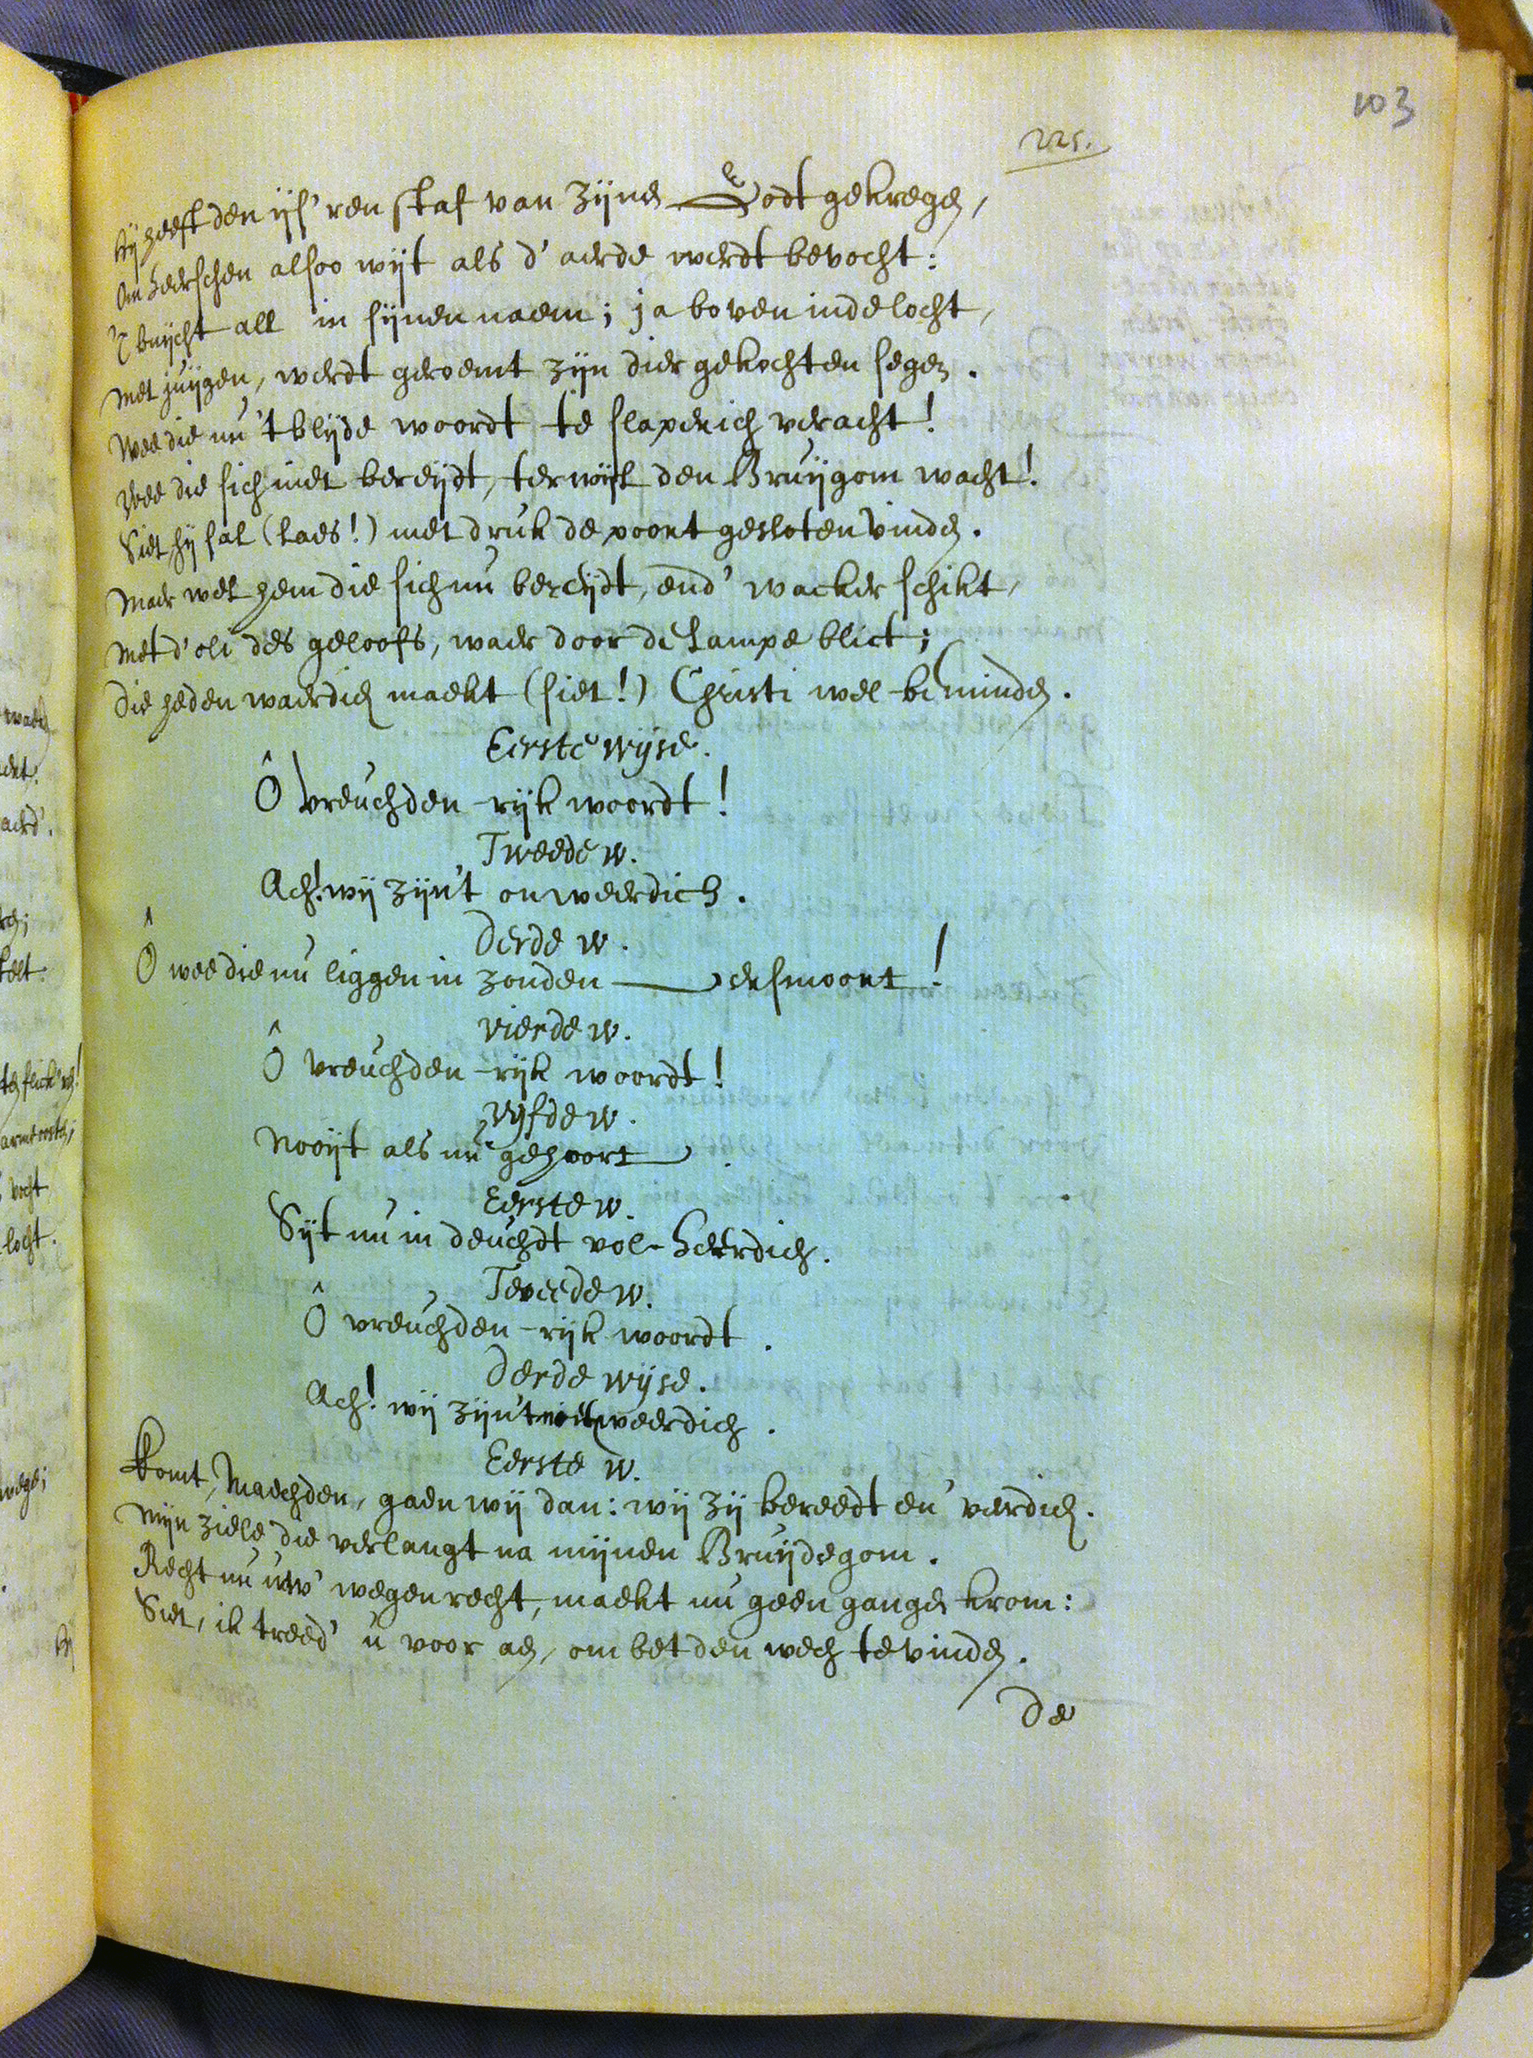 103
225.
Hij heeft den ijs'ren staf van zijnen Godt gekregen,
Om heerschen alsoo wijt als d' aerde werdt bevocht:
't buijcht all in sijnen naem; ja boven inde locht,
Met juijgen, werdt geroemt zijn dier gekochten segen.
Wee die nu 't blijde woordt te slaperich veracht!
Wee die sich niet bereijdt, terwijl den Bruijgom wacht!
Siet hij sal (laes!) met druk de poort gesloten vinden.
Maer wel hem die sich nu bereijdt, end' wacker schikt,
Met d'oli des geloofs, waer door de Lampe blict;
Die heden waerdich maekt (siet!) Christi wel-beminden.
Eerste wijse.
Ô vreuchden-rijk woordt!
Tweede w.
Ach! wij zijn't onweerdich.
Derde w.
Ô wee die nu liggen in zonden versmoort!
Vierde w.
Ô vreuchden-rijk woordt!
Vijfde w.
Nooijt als nu gehoort.
Eerste w.
Sijt nu in deuchdt vol-heerdich.
Tweede w.
Ô vreuchden-rijk woordt.
Derde wijse.
Ach! wij zijn't weerdich.
Eerste w.
Komt, Maechden, gaen wij dan: wij zij bereedt en' veerdich.
Mijn ziele die verlangt na mijnen Bruijdegom.
Recht nu uw' wegen recht, maekt nu geen gangen krom:
Siet, ik treed' u voor aen, om bet den wech te vinden.
De